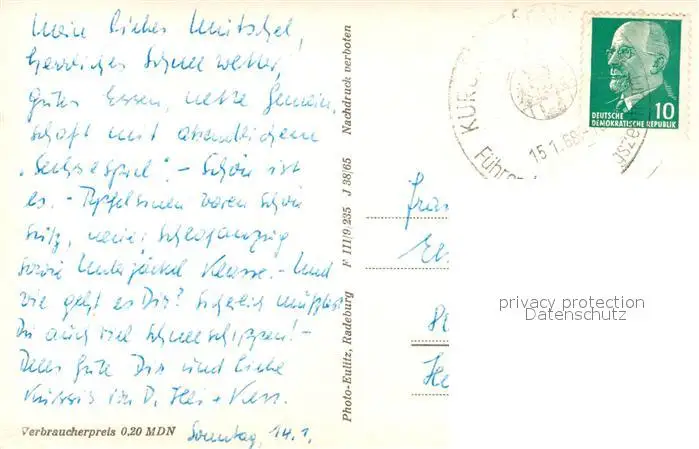 Mein lieber Mutschel,
herrliches Schneewetter,
gutes Essen, nette Gemein-
schaft mit abendlichem
"Sechsespiel". - Schön ist
es. - Apfelsinen waren schön
süß, neue Schlafanzug
sowie Unterjäckel Klasse. - Und
wie geht es Dir? Sicherlich mußtest
Du auch viel Schneeschippen! -
Alles Gute Dir und liebe
Küsse
Sonntag, 14.1.
Verbraucherpreis 0,20 MDN
Photo-Eulitz, Radeburg F III/9,235 J 38/65 Nachdruck verboten
DEUTSCHE
DEMOKRATISCHE REPUBLIK
10
15.1.68
privacy protection
Datenschutz